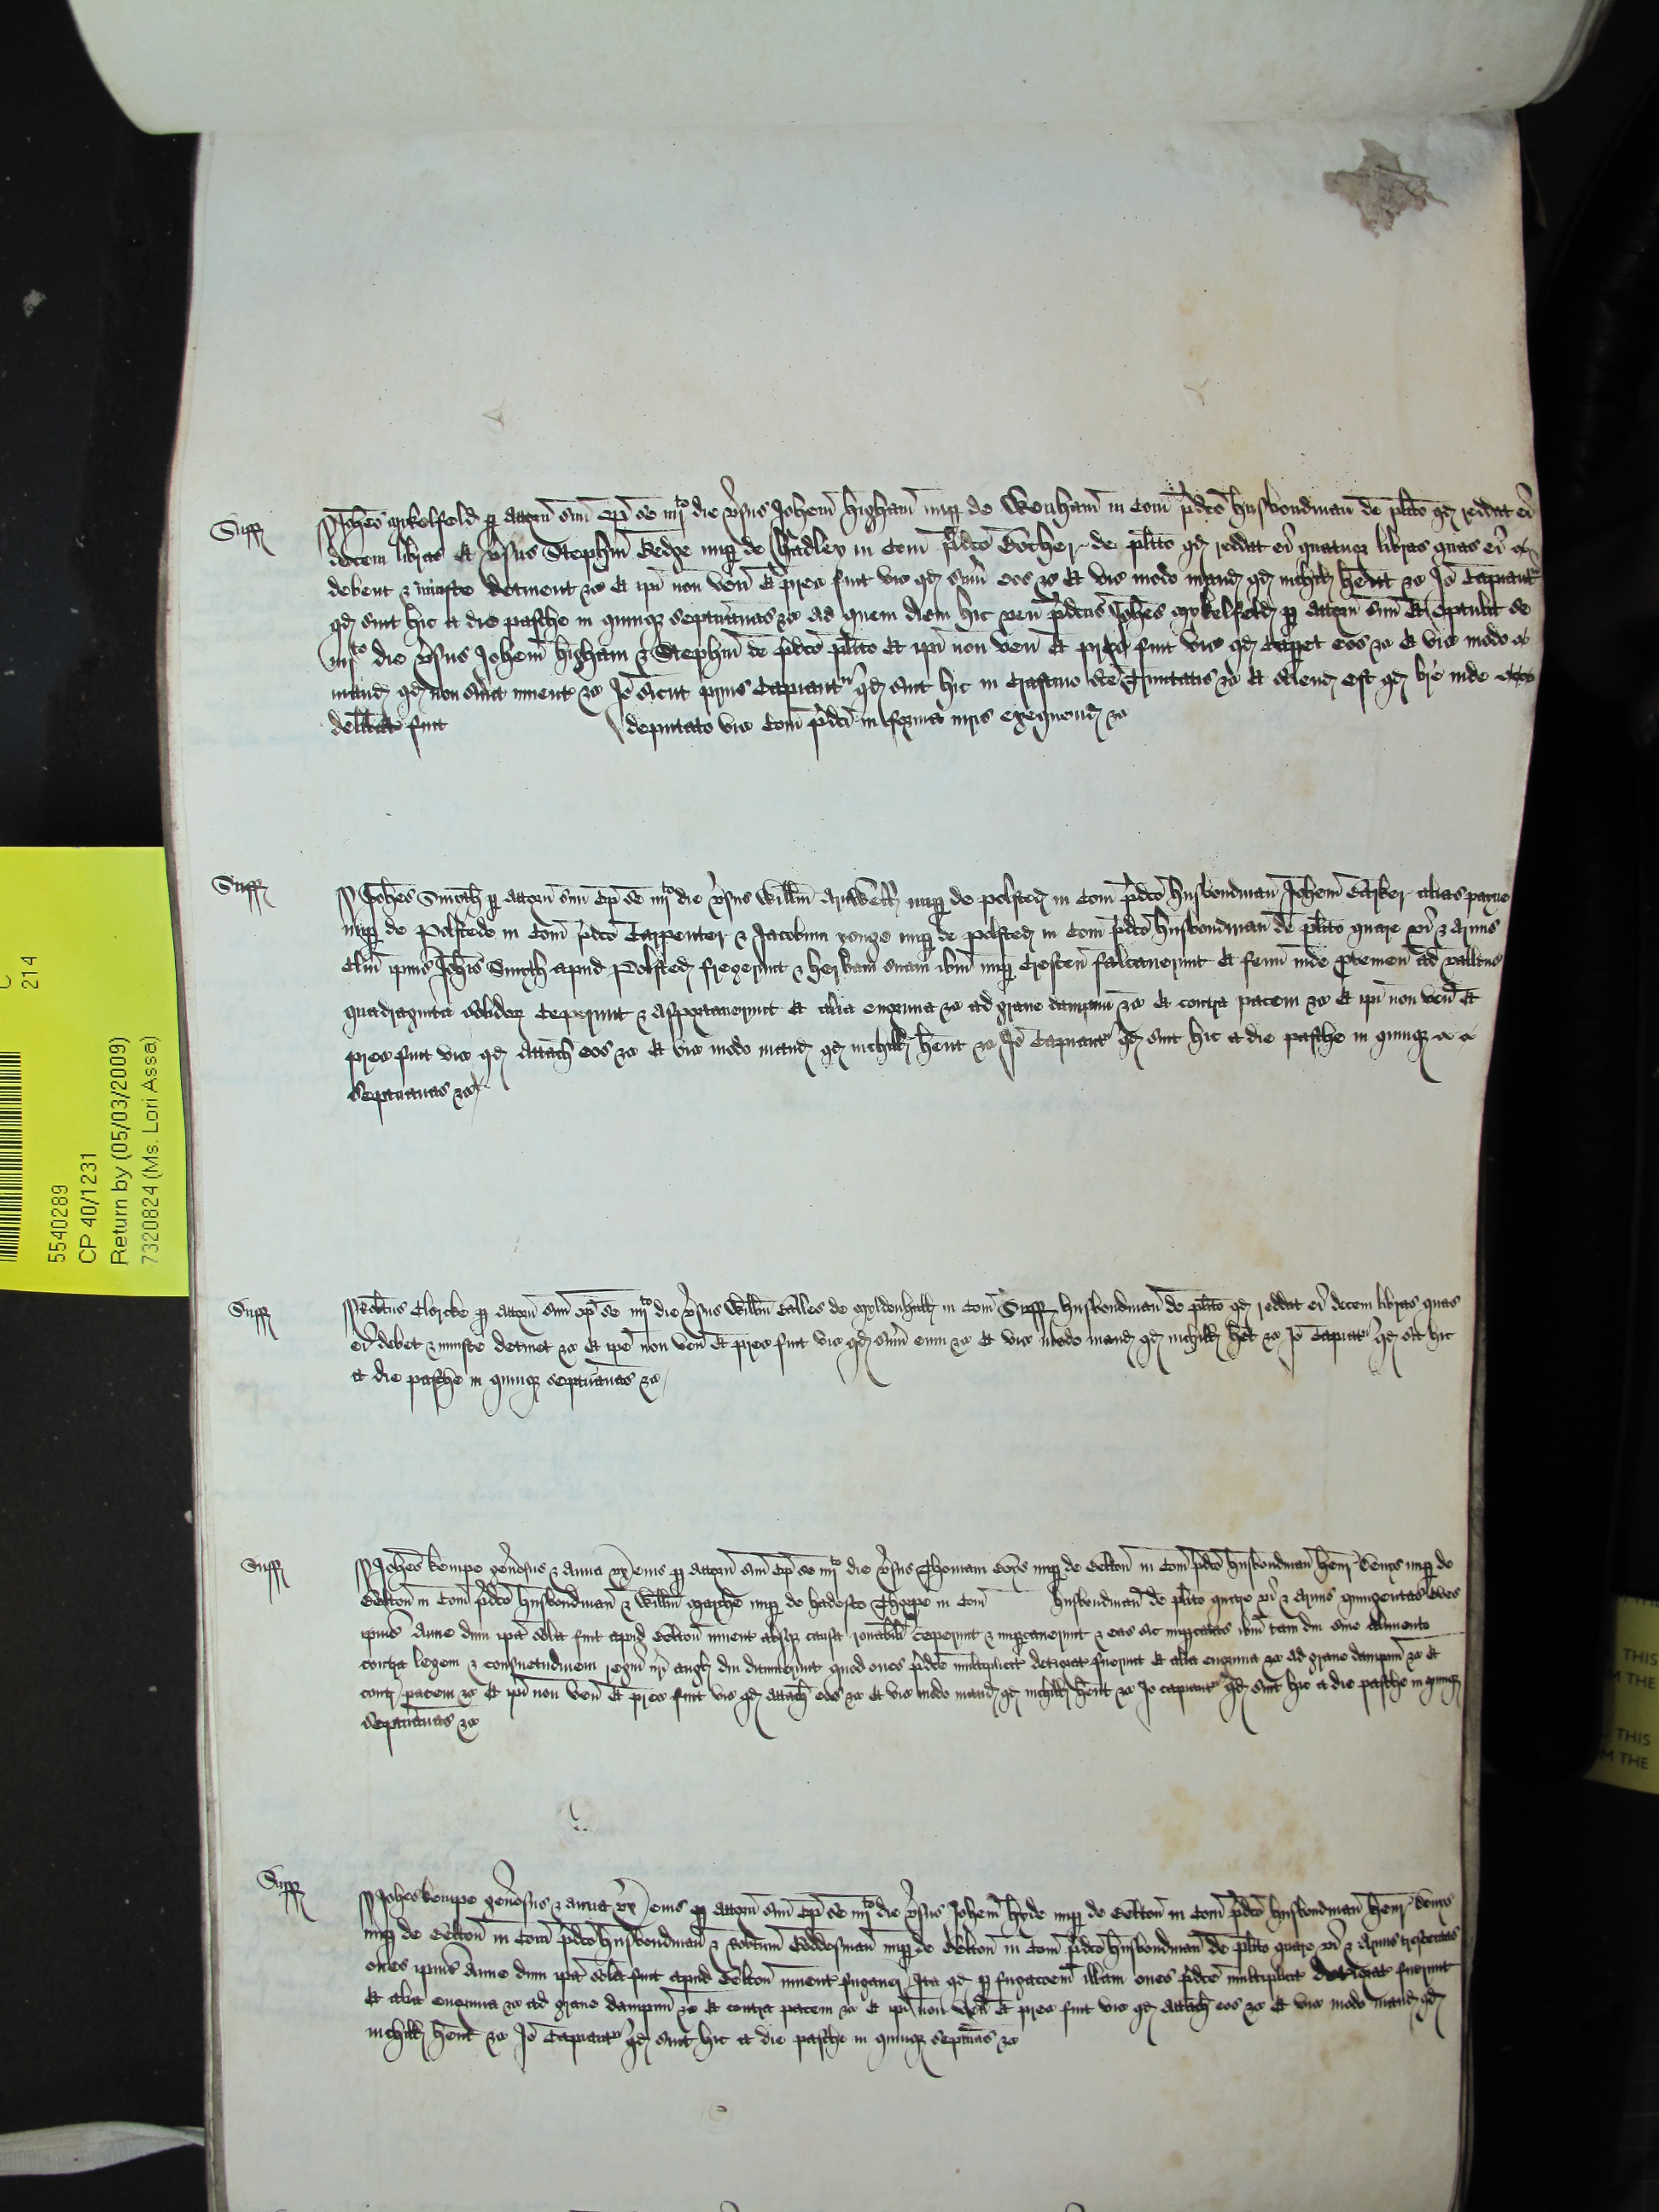 Suff
Joh̄es Mekelfeld p attorn̄ suū op̄ se iiijto die v̄sus Joh̄em Higham nup de Wenham in Com̄ p̄dc̄o husbondman de pl̄ito qd reddat ei
decem libras Et v̄sus Steph̄m Kedge nup de Hadley in Com̄ p̄dc̄o Bocher de pl̄ito qd reddat ei quatuor libras quas ei
debent & iniuste detinent &c Et ip̄i non ven̄ Et prec̄ fuit vic̄ qd sum̄ eos &c Et vic̄ modo mand qd nichil h̄ent &c Jo Capiantr
qd sint hic a die pasche in quinq septimanas &c ad quem diem hic ven̄ p̄dc̄us Joh̄es Mekelfeld p attorn̄ suū Et optulit se
iiijto die v̄sus Joh̄em Higham & Steph̄m de p̄dc̄o pl̄ito Et ip̄i non ven̄ Et prec̄ fuit vic̄ qd Capet eos &c Et vic̄ modo
mand qd non sunt inuent &c Jo sicut prius Capiantr qd sint hic in Crastino sc̄e Trinitatis &c Et sciend est qd br̄e inde
delib̄at fuit deputato vic̄ Com̄ p̄dc̄i in forma iuris exequend &c
Suff
Joh̄es Smyth p attorn̄ suū op̄ se iiijto die v̄sus Will̄m nup de Polsted in Com̄ p̄dc̄o husbondman Joh̄em Barker alias
nup de Polstede in Com̄ p̄dc̄o Carpenter & Jacobum yonge nup de Polsted in Com̄ p̄dc̄o husbondman de pl̄ito quare vi & armis
Clm̄ ipius Joh̄is Smyth apud Polsted fregerunt & herbam suam ib̄m nup Crescen̄ falcauerunt Et fenū inde ad valenc̄
quadraginta solidoz Ceperunt & asportauerunt Et alia enormia &c ad graue dampnū &c Et contra pacem &c Et ip̄i non ven̄ Et
prec̄ fuit vic̄ qd attach eos &c Et vic̄ modo mand qd nichil h̄ent &c Jo Capiantr qd sint hic a die pasche in quinq
septimanas &c
Suff
Rob̄tus Clercke p attorn̄ suū op̄ se iiijto die v̄sus Will̄m Calles de Myldenhall in Com̄ Suff husbondman de pl̄ito qd reddat ei decem libras quas
ei debet & iniuste detinet &c Et ip̄e non ven̄ Et prec̄ fuit vic̄ qd sum̄ eum &c Et vic̄ modo mand qd nichil h̄et &c Jo Capiatr qd sit hic
a die pasche in quinq septimanas &c
Suff
Joh̄es Kempe gen̄osus & Anna vx̄ eius p attorn̄ suū op̄ se iiijto die v̄sus Thomam nup de Belton in Com̄ p̄dc̄o husbondman Henr̄ nup de
Belton in Com̄ p̄dc̄o husbondman & Will̄m nup de Hadesco Thorpe in Com̄ husbondman de pl̄ito quare vi & armis quingentas oves
ipius Anne dum ip̄a sola fuit apud Belton inuent absq causa ronabili Ceperunt & imparcauerunt & eas sic imparcatas ib̄m tam diu sine alimento
contra legem & consuetudinem regni nr̄i Angl̄ diu detinuerunt quod oues p̄dc̄e multiplicit deteriorat fuerunt Et alia enormia &c ad graue dampnū &c Et
contr pacem &c Et ip̄i non ven̄ Et prec̄ fuit vic̄ qd attach eos &c Et vic̄ modo mand qd nichil h̄ent &c Jo capiantr qd sint hic a die pasche in quinq
septimanas &c
Suff
Joh̄es Kempe gen̄osus & Anna vx̄ eius p attorn̄ suū op̄ se iiijto die v̄sus Joh̄em Hyde nup de Belton in Com̄ p̄dc̄o husbondman Henr̄
nup de Belton in Com̄ p̄dc̄o husbondman & Rob̄tum Goddesman nup de Belton in Com̄ p̄dc̄o husbondman de pl̄ito quare vi & armis trescentas
oues ipius Anne dum ip̄a sola fuit apud Belton inuent fugauer Ita qd p fugac̄oem illam oues p̄dc̄e multiplicit deteriorat fuerunt
Et alia enormia &c ad graue dampnū &c Et contra pacem &c Et ip̄i non ven̄ Et prec̄ fuit vic̄ qd attach eos &c Et vic̄ modo mand qd
nichil h̄ent &c Jo Capiantr qd sint hic a die pasche in quinq septimanas &c
214
5540289
CP 40/1231
Return by (05/03/2009)
7320824 (Ms. Lori Assa)
THIS
M THE
THIS
M THE